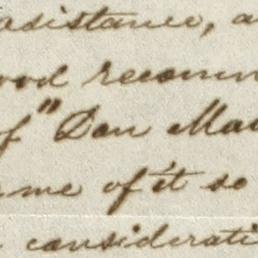 assistance, a
ood recomm
of "Dan Mac
me of it so
considerati